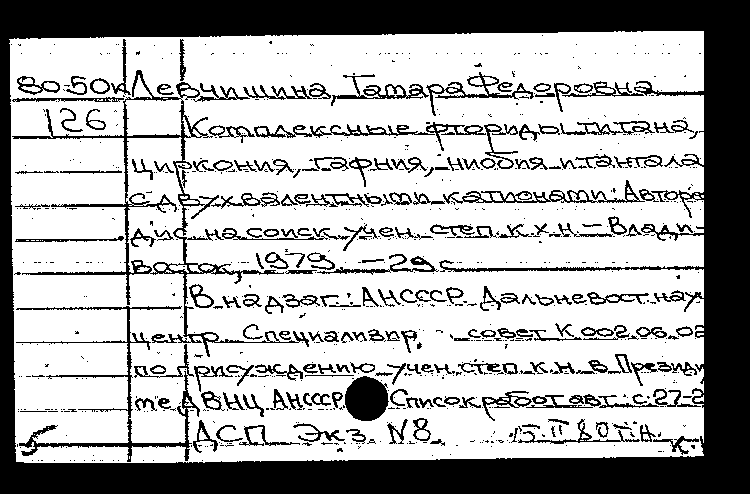 80-50к Левчишина, Тамара Федоровна
126 Комплексные фториды титана,
циркония, гафния, ниобия и тантала
с двухвалентными катионами: Авторе
дис. на соиск. учен. степ. к.х.н – Влади-
восток, 1979. – 29 с
В надзаг.: АН СССР. Дальневост. науч
центр. Специализир. совет К 002.06.02
по присуждению учен. степ. к.н. в Президи
те ДВНЦ АН СССР Список работ авт.: с. 27-2
5 ДСП Экз. N8. 15.II 80